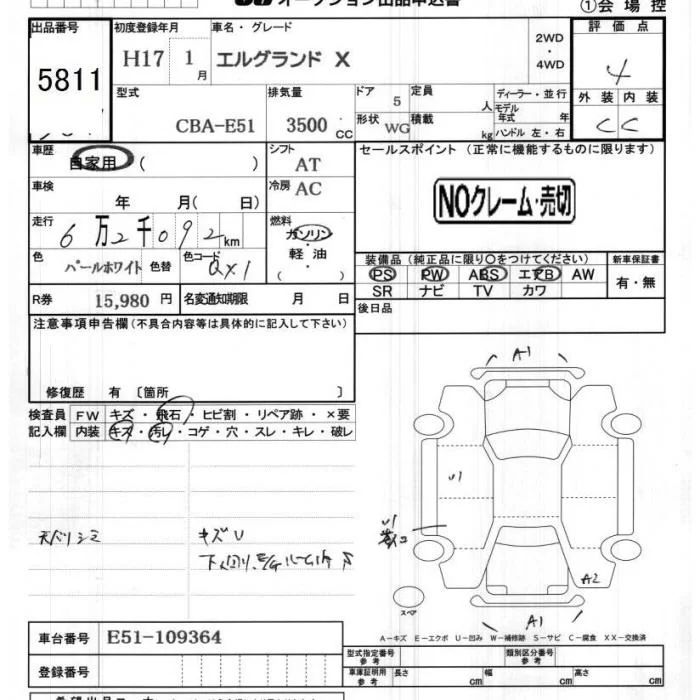 オークション出品申込書
①会場控
出品番号
5811
初度登録年月
H17 1月
車名・グレード
エルグランド X
2WD
・
4WD
評価点
4
外装 内装
C C
型式
CBA-E51
排気量
3500 CC
ドア
5
定員
人
形状
WG
積載
kg
ディーラー・並行
モデル年式 年
ハンドル 左・右
車歴
自家用 ( )
シフト
AT
車検
年 月( 日)
冷房
AC
走行
6万2千092km
燃料
ガソリン
・
軽油
( )
色
パールホワイト
色替
色コード
QX1
R券
15,980 円
名変通知期限 月 日
セールスポイント (正常に機能するものに限ります)
NOクレーム・売切
装備品 (純正品に限り○をつけてください)
PS PW ABS エアB AW
SR ナビ TV カワ
新車保証書
有・無
後日品
注意事項申告欄(不具合内容等は具体的に記入して下さい)
修復歴 有 〔箇所 〕
検査員
記入欄
FW キズ・飛石・ヒビ割・リペア跡・×要
内装 キズ・汚レ・コゲ・穴・スレ・キレ・破レ
天バリシミ
キズU
下回り
A1
U1
U1
A2
A1
スペア
A―キズ E―エクボ U―凹み W―補修跡 S―サビ C―腐食 XX―交換済
車台番号
E51-109364
登録番号
型式指定番号
参考
類別区分番号
参考
車庫証明用
参考
長さ cm
幅 cm
高さ cm